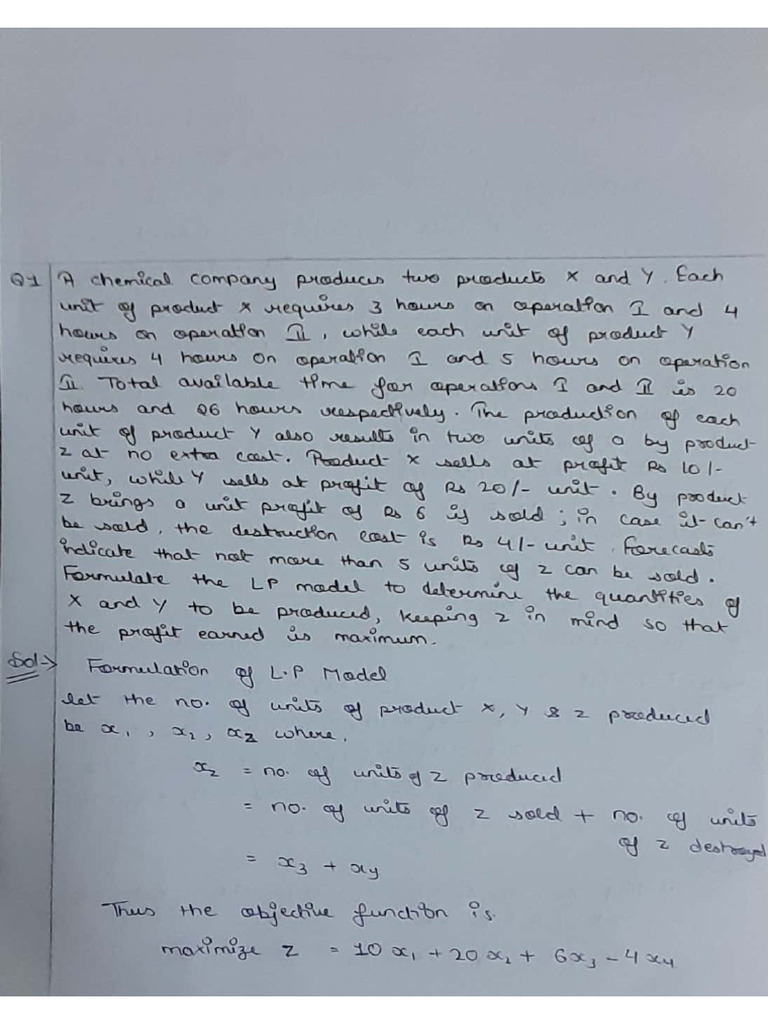 Q1 A chemical company produces two products X and Y. Each
unit of product X requires 3 hours on operation I and 4
hours on operation II, while each unit of product Y
requires 4 hours on operation I and 5 hours on operation
II. Total available time for operations I and II is 20
hours and 26 hours respectively. The production of each
unit of product Y also results in two units of a by product
Z at no extra cost. Product X sells at profit Rs 10/-
unit, while Y sells at profit of Rs 20/- unit. By product
Z brings a unit profit of Rs 6 if sold; in case it can't
be sold, the destruction cost is Rs 4/- unit. Forecasts
indicate that not more than 5 units of Z can be sold.
Formulate the LP model to determine the quantities of
X and Y to be produced, keeping Z in mind so that
the profit earned is maximum.
Sol→ Formulation of L.P Model
let the no. of units of product X, Y & Z produced
be x₁, x₂, xz where,
xz = no. of units of Z produced
= no. of units of Z sold + no. of units
of Z destroyed
= x₃ + x₄
Thus the objective function is.
maximize Z = 10x₁ + 20x₂ + 6x₃ - 4x₄